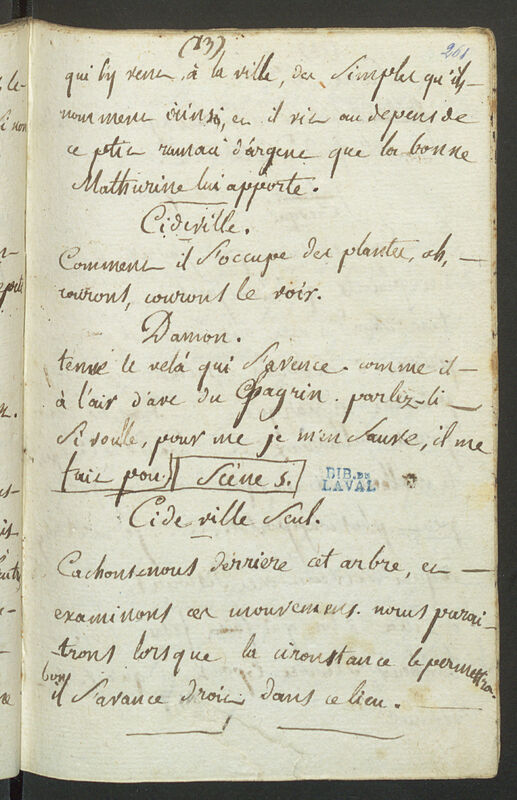 (13)
201
qui l'y vent, à la ville, des Simples qu'ils
nomment ainsi, et il vit au depens de
ce ptit ramaci d'argent que la bonne
Mathurine lui apporte.
Cideville.
Comment il S'occupe des plantes, ah,
courons, courons le voir.
Damon.
tenné le velà qui S'avence. comme il
à l'air d'ave du Chagrin. parlez-li
Si voulle, pour me je m'en Sauve, il me
fait pou.) Scène 5.
BIB. DE
LAVAL
Cideville Seul.
Cachons-nous dérriere cet arbre, et
examinons ces mouvemens. nous parai-
trons lorsque la circonstance le permettra.
bon
il S'avance droit dans ce lieu.